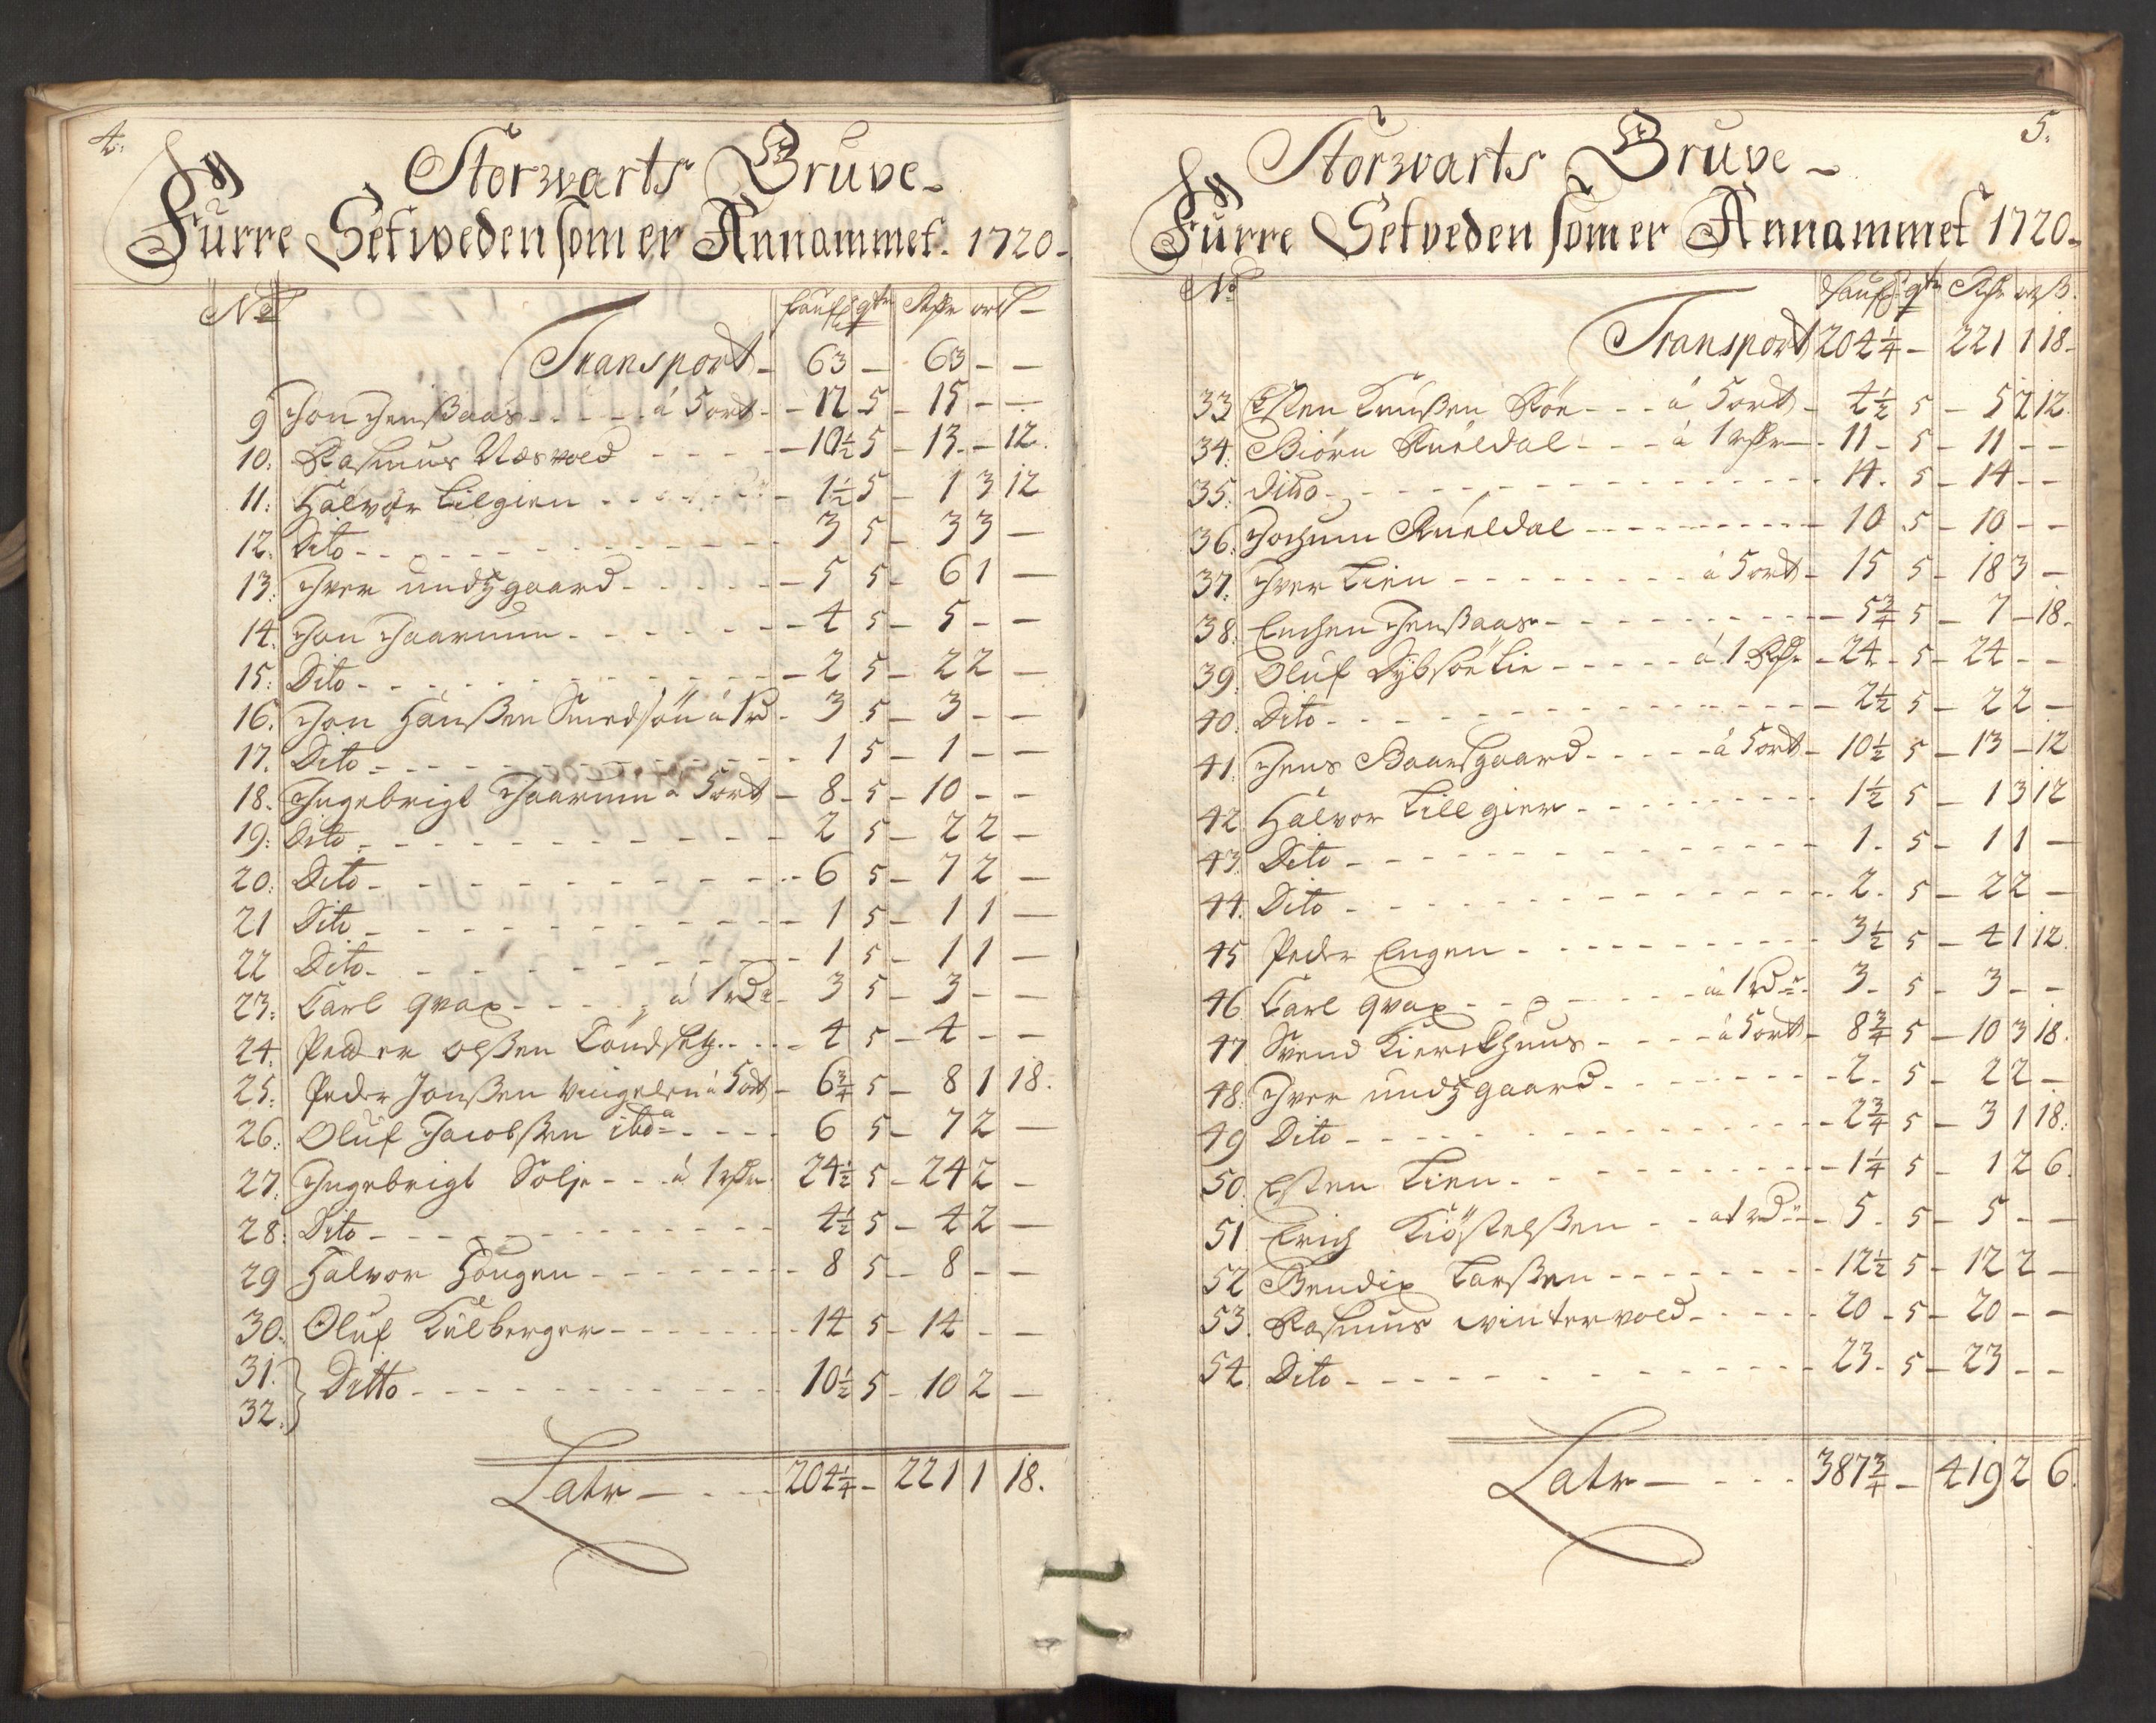 4.
Storwarts Gruve
Furre Setweden som er Annammet. 1720
No. faufn qtr Rdr ort ß
Transport 63 — 63 — —
9 Jon Jensaas à 5 ort 12 5 15 — —
10. Rasmus Næswold 10½ 5 13 — 12.
11. Halvor Lilgien 1½ 5 1 3 12
12. Dito 3 5 3 3 —
13. Iver undtzgaard 5 5 6 1 —
14. Jon Joarum 4 5 5 — —
15. Dito 2 5 2 2 —
16. Jon Hanßen Smedsön à 1 rd 3 5 3 — —
17. Dito 1 5 1 — —
18. Ingebrigt Joarum à 5 ort 8 5 10 — —
19. Dito 2 5 2 2 —
20. Dito 6 5 7 2 —
21 Dito 1 5 1 1 —
22 Dito 1 5 1 1 —
23. Carl qvax à 1 rdr 3 5 3 — —
24. Peder olßen 4 5 4 — —
25. Peder Jonßen Vingelen à 5 ort 6¾ 5 8 1 18.
26. Oluf Jacobßen ibd 6 5 7 2 —
27. Ingebrigt Solje à 1 rdr 24½ 5 24 2 —
28. Dito 4½ 5 4 2 —
29 Halvor Hougen 8 5 8 — —
30. Oluf Külberger 14 5 14 — —
31. 32. Ditto 10½ 5 10 2 —
Latr 204¼ — 221 1 18.
5.
Storwarts Gruve
Furre Setveden som er Annammet 1720
No. faufn qtr Rdr ort ß.
Transport 204¼ — 221 1 18
33 Esten Knußen Röe à 5 ort 4½ 5 5 2 12.
34. Biörn Rueldal à 1 rdr 11 5 11 — —
35. Ditto 14 5 14 — —
36. Jochum Rueldal 10 5 10 — —
37. Iver Lien à 5 ort 15 5 18 3 —
38. Jensaas 5¾ 5 7 — 18.
39. Oluf Dybsöelie à 1 Rdr 24 5 24 — —
40. Dito 2½ 5 2 2 —
41. Jens Baardgaard à 5 ort 10½ 5 13 — 12
42. Halvor Lillgien 1½ 5 1 3 12
43. Dito 1 5 1 1 —
44. Dito 2 5 2 2 —
45 Peder Engen 3½ 5 4 1 12.
46. Carl qvax à 1 rdr 3 5 3 — —
47 Svend Kierckhuus à 5 ort 8¾ 5 10 3 18.
48. Iver undtzgaard 2 5 2 2 —
49 Dito 2¾ 5 3 1 18.
50. Esten Lien 1¼ 5 1 2 6.
51 Erich Kiöstelßen à 1 rdr 5 5 5 — —
52 Bendix Larßen 12½ 5 12 2 —
53. Rasmus wintervold 20 5 20 — —
54. Dito 23 5 23 — —
Latr 387¾ — 419 2 6.